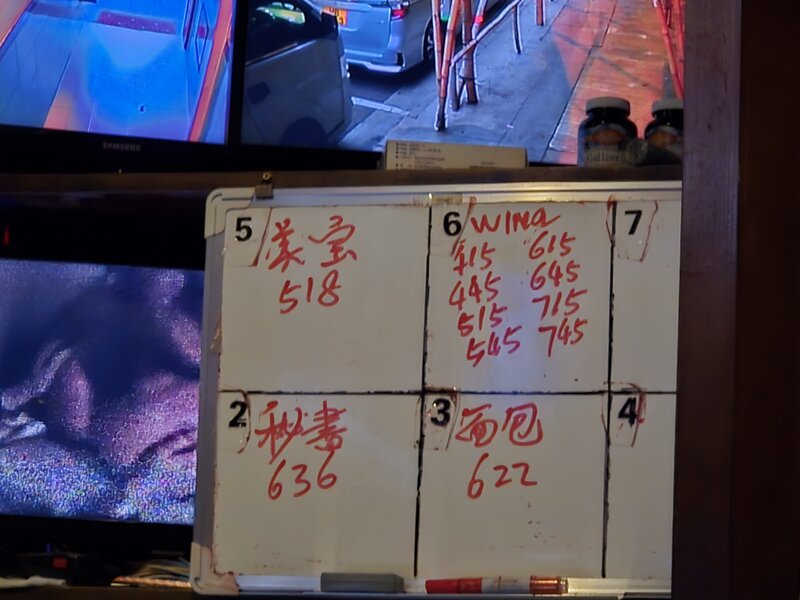 SAMSUNG
5
美宝
518
6
WINA
415 615
445 645
515 715
545 745
7
2
秘書
636
3
面包
622
4